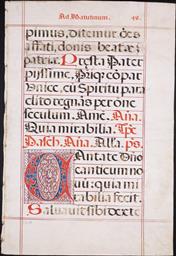 Ad Matutinum. 49.
pimus, Ditemur oēs
astāti, donis beatæ
patriæ. Presta Pater
piissime, Patriq; cōpar
Vnice, cū Spiritu para
clito regnās per ōne
sæculum. Amē. Aña.
Quia mirabilia. Tpe
Pasch. Aña. Alla. ps.
Cantate Dño
canticum no
uū: quia mi
rabilia fecit.
Saluauit sibi dexte